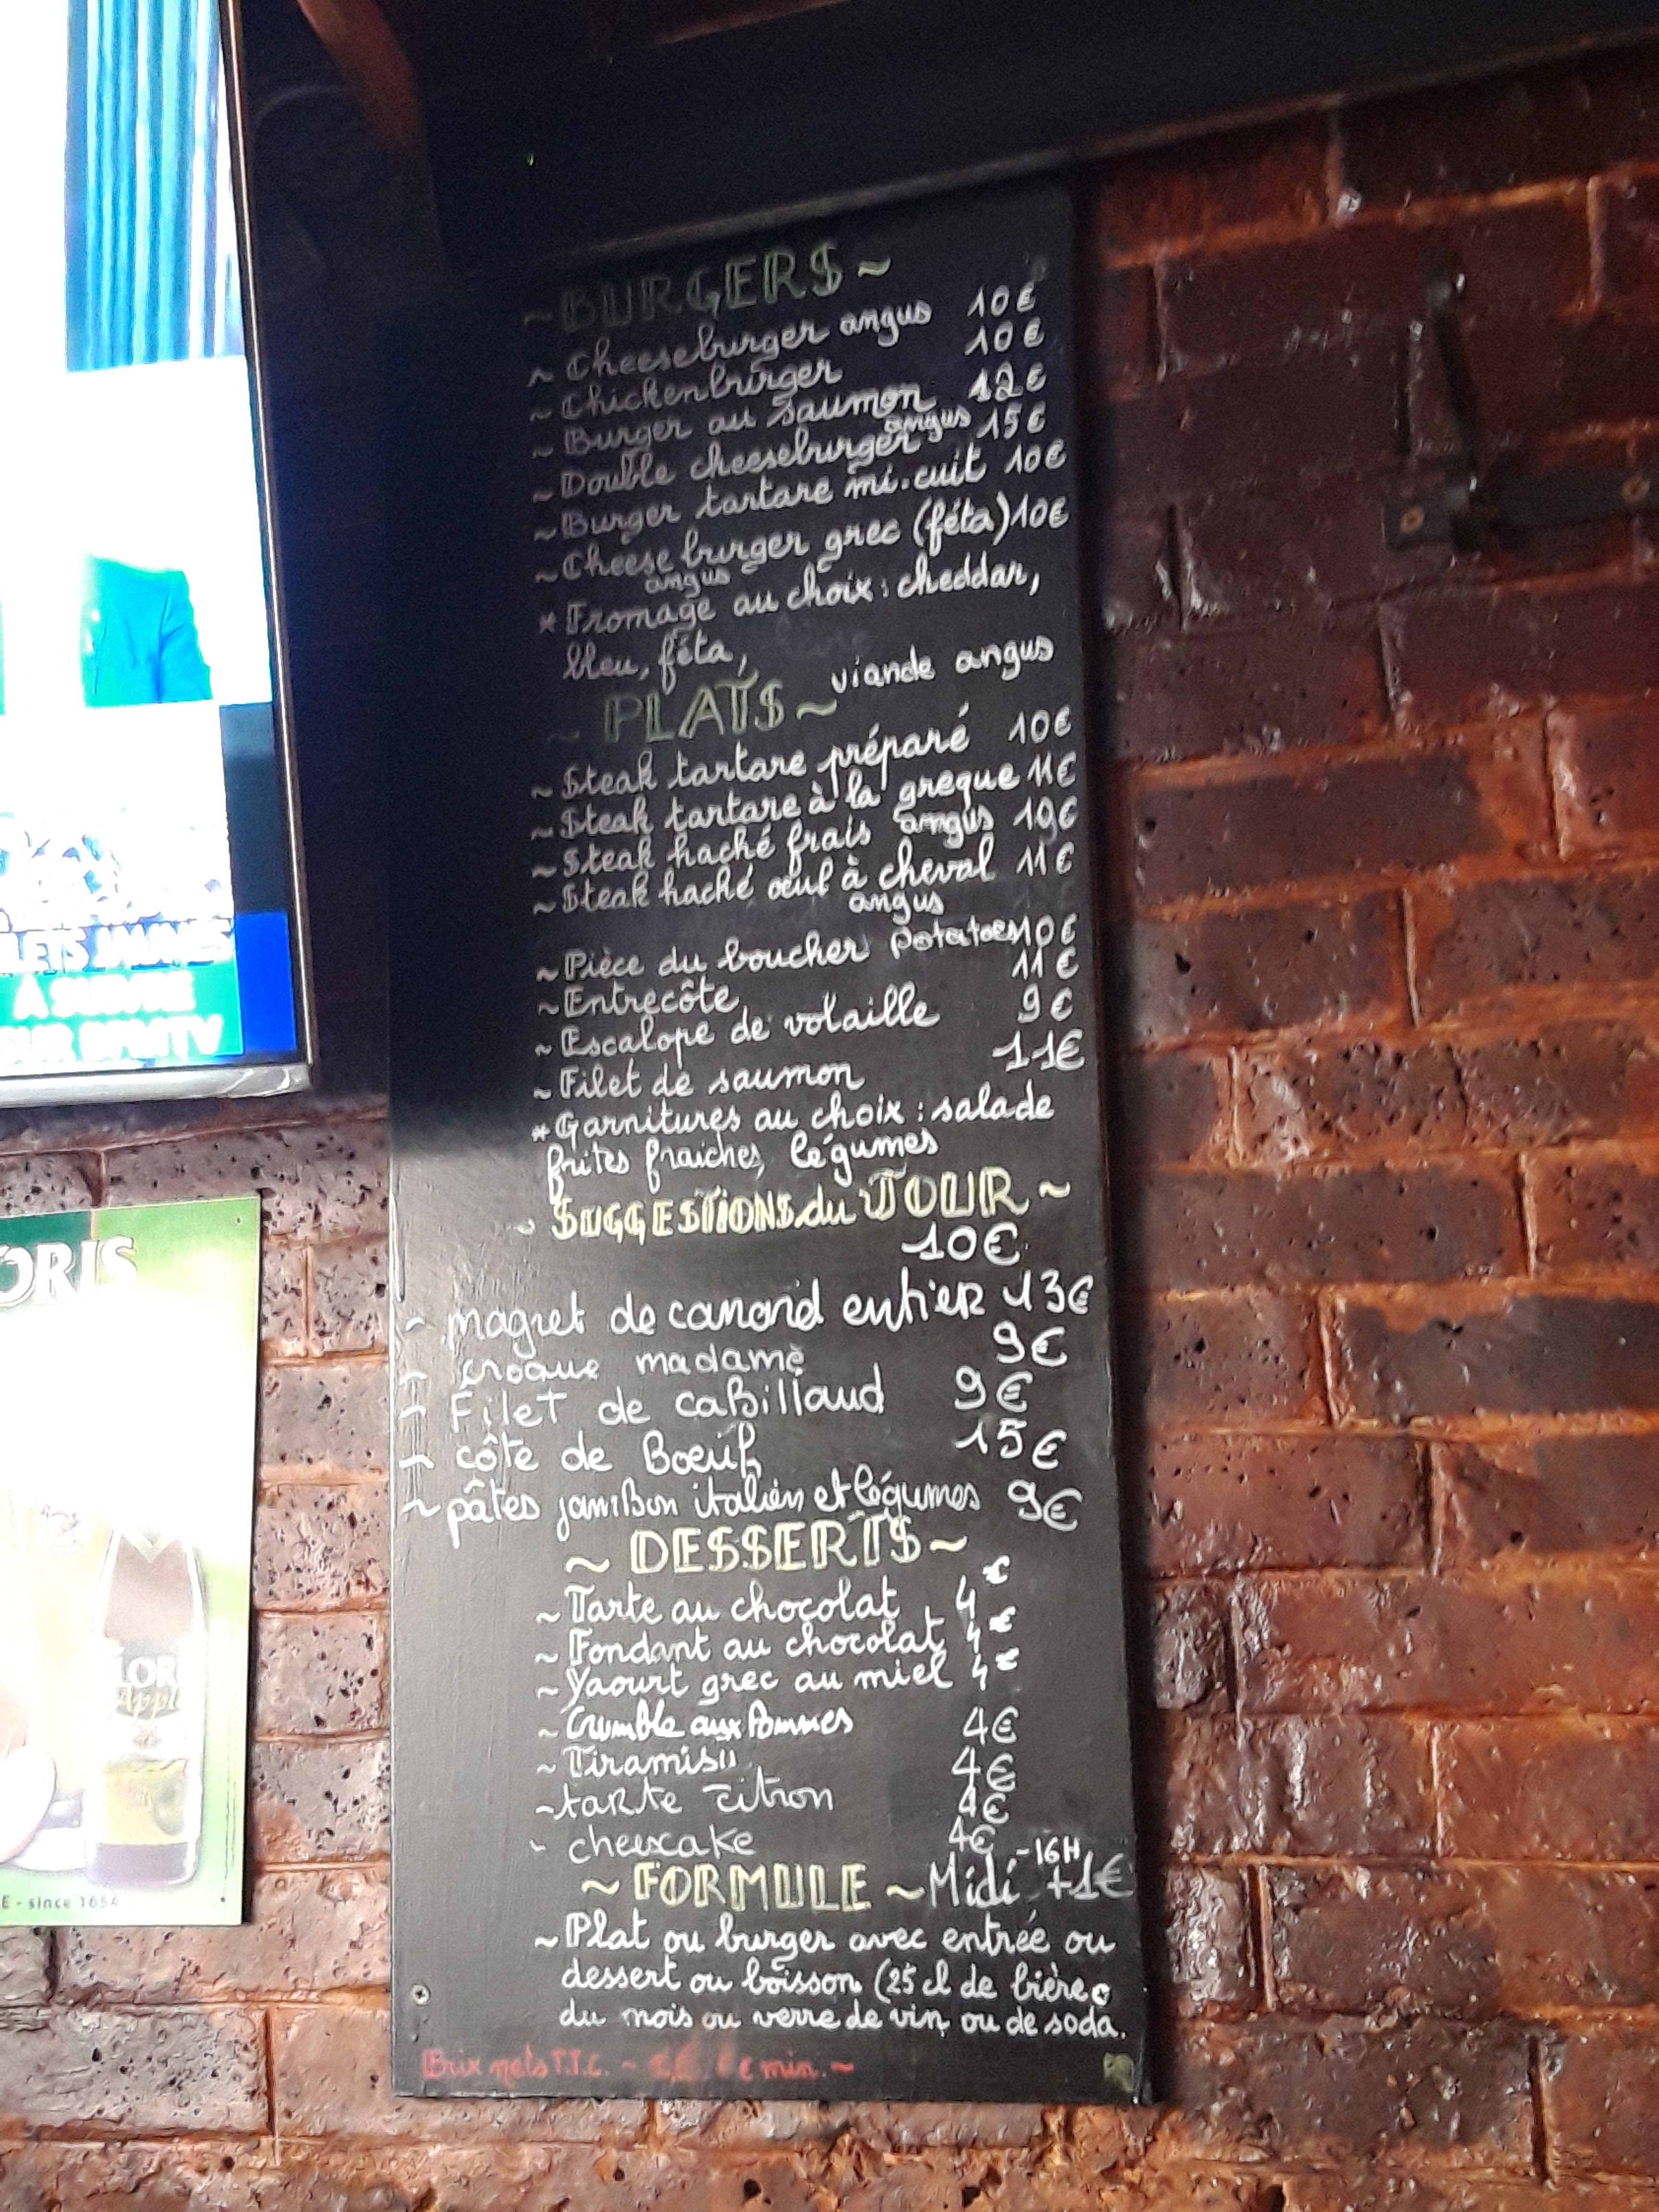 ~ BURGERS ~
~ Cheeseburger angus 10€
~ Chickenburger 10€
~ Burger au saumon 12€
~ Double cheeseburger angus 15€
~ Burger tartare mi-cuit 10€
~ Cheese burger grec (féta) 10€
angus
* Fromage au choix : cheddar,
bleu, féta,
~ PLATS ~ viande angus
~ Steak tartare préparé 10€
~ Steak tartare à la greque 11€
~ Steak haché frais angus 10€
~ Steak haché œuf à cheval 11€
angus
~ Pièce du boucher Potatoes 10€
~ Entrecôte 11€
~ Escalope de volaille 9€
~ Filet de saumon 11€
* Garnitures au choix : salade
frites fraiches, légumes
~ SUGGESTIONS du JOUR ~
10€
~ magret de canard entier 13€
~ croque madame 9€
~ Filet de caBillaud 9€
~ côte de Boeuf 15€
~ pâtes jamBon italien et légumes 9€
~ DESSERTS ~
~ Tarte au chocolat 4€
~ Fondant au chocolat 4€
~ Yaourt grec au miel 4€
~ Crumble aux Pommes 4€
~ Tiramisu 4€
~ tarte citron 4€
~ cheescake 4€
~ FORMULE ~ Midi -16H +1€
~ Plat ou burger avec entrée ou
dessert ou boisson (25 cl de bière
du mois ou verre de vin ou de soda.
Prix nets T.T.C. ~ € min. ~
LETS JAUNES
À SUIVRE
SUR BFMTV
ORIS
LOR
E - since 1654